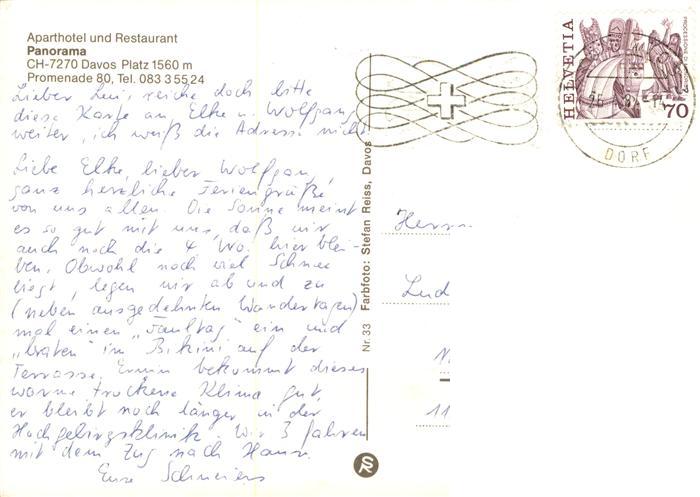 Aparthotel und Restaurant
Panorama
CH-7270 Davos Platz 1560 m
Promenade 80, Tel. 083 3 55 24
Lieber Lui, reiche doch bitte
diese Karte an Elke u. Wolfgang
weiter, ich weiß die Adresse nicht!
Liebe Elke, lieber Wolfgang,
ganz herzliche Feriengrüße
von uns allen. Die Sonne meint
es so gut mit uns, daß wir
auch noch die 4. Wo. hier blei-
ben. Obwohl noch viel Schnee
liegt, legen wir ab und zu
(neben ausgedehnten Wandertagen)
mal einen "Faultag" ein und
"braten" im Bikini auf der
Terrasse. Erwin bekommt dieses
warme trockene Klima gut,
er bleibt noch länger in der
Hochgebirgsklinik. Wir 3 fahren
mit dem Zug nach Hause.
Eure Schneiers
Nr. 33 Farbfoto: Stefan Reiss, Davos
SR
HELVETIA
70
DORF
Herrn
Lud
11